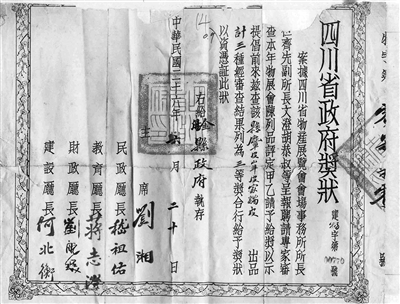 四川省政府獎狀
案據四川省物產展覽會會場事務所所長
齊先副所長文澄胡恭叔等呈報聘請專家審
查本年物展會陳列品評定甲乙請予給獎以示
提倡前來茲查該縣 出品
計三種經審查結果列為二等獎合行給予獎狀
以資憑証此狀
右給 縣政府執存
主席 劉湘
民政廳長 嵇祖佑
財政廳長 劉航琛
教育廳長 蔣志澄
建設廳長 何北衡
中華民國二十六年 月二十日